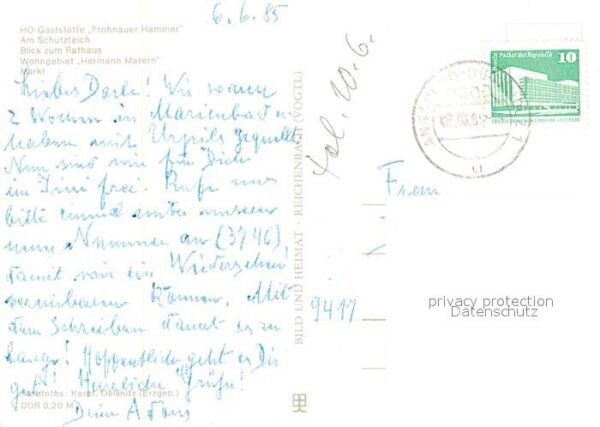 6.6.85
HO-Gaststätte „Frohnauer Hammer"
Am Schutzteich
Blick zum Rathaus
Wohngebiet „Hermann Matern"
Markt
Liebes Dorle! Wir waren
2 Wochen in Marienbad u.
haben mit gequellt
Nun sind wir für Dich
im Juni frei. Rufe uns
bitte einmal unter unserer
neuen Nummer an (3746),
damit wir ein Wiedersehen
vereinbaren können. Mit
dem Schreiben dauert es zu
lange! Hoffentlich geht es Dir
gut! Herzliche Grüße!
Farbfotos: Karpf, Oelsnitz (Erzgeb.)
DDR 0,20 M
Deine
BILD UND HEIMAT · REICHENBACH (VOGTL)
tel. 10.6.
Palast der Republik
10
Frau
9417
privacy protection
Datenschutz